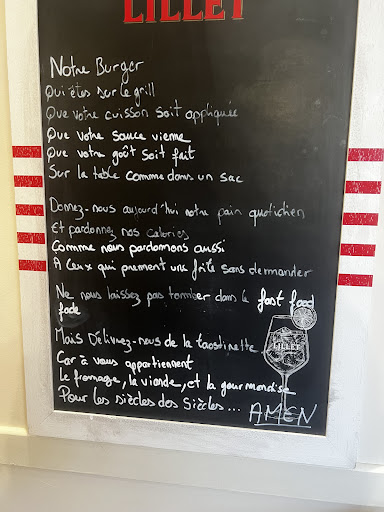 LILLET
Notre Burger
Qui êtes sur le grill
Que votre cuisson soit appliquée
Que votre sauce vienne
Que votre goût soit fait
Sur la table comme dans un sac
Donnez-nous aujourd'hui notre pain quotidien
Et pardonnez nos calories
Comme nous pardonnons aussi
A ceux qui prennent une frite sans demander
Ne nous laissez pas tomber dans le fast food
fade
Mais Délivrez-nous de la tostinette
LILLET
Car à vous appartiennent
Le fromage, la viande, et la gourmandise
Pour les siècles des siècles... AMEN